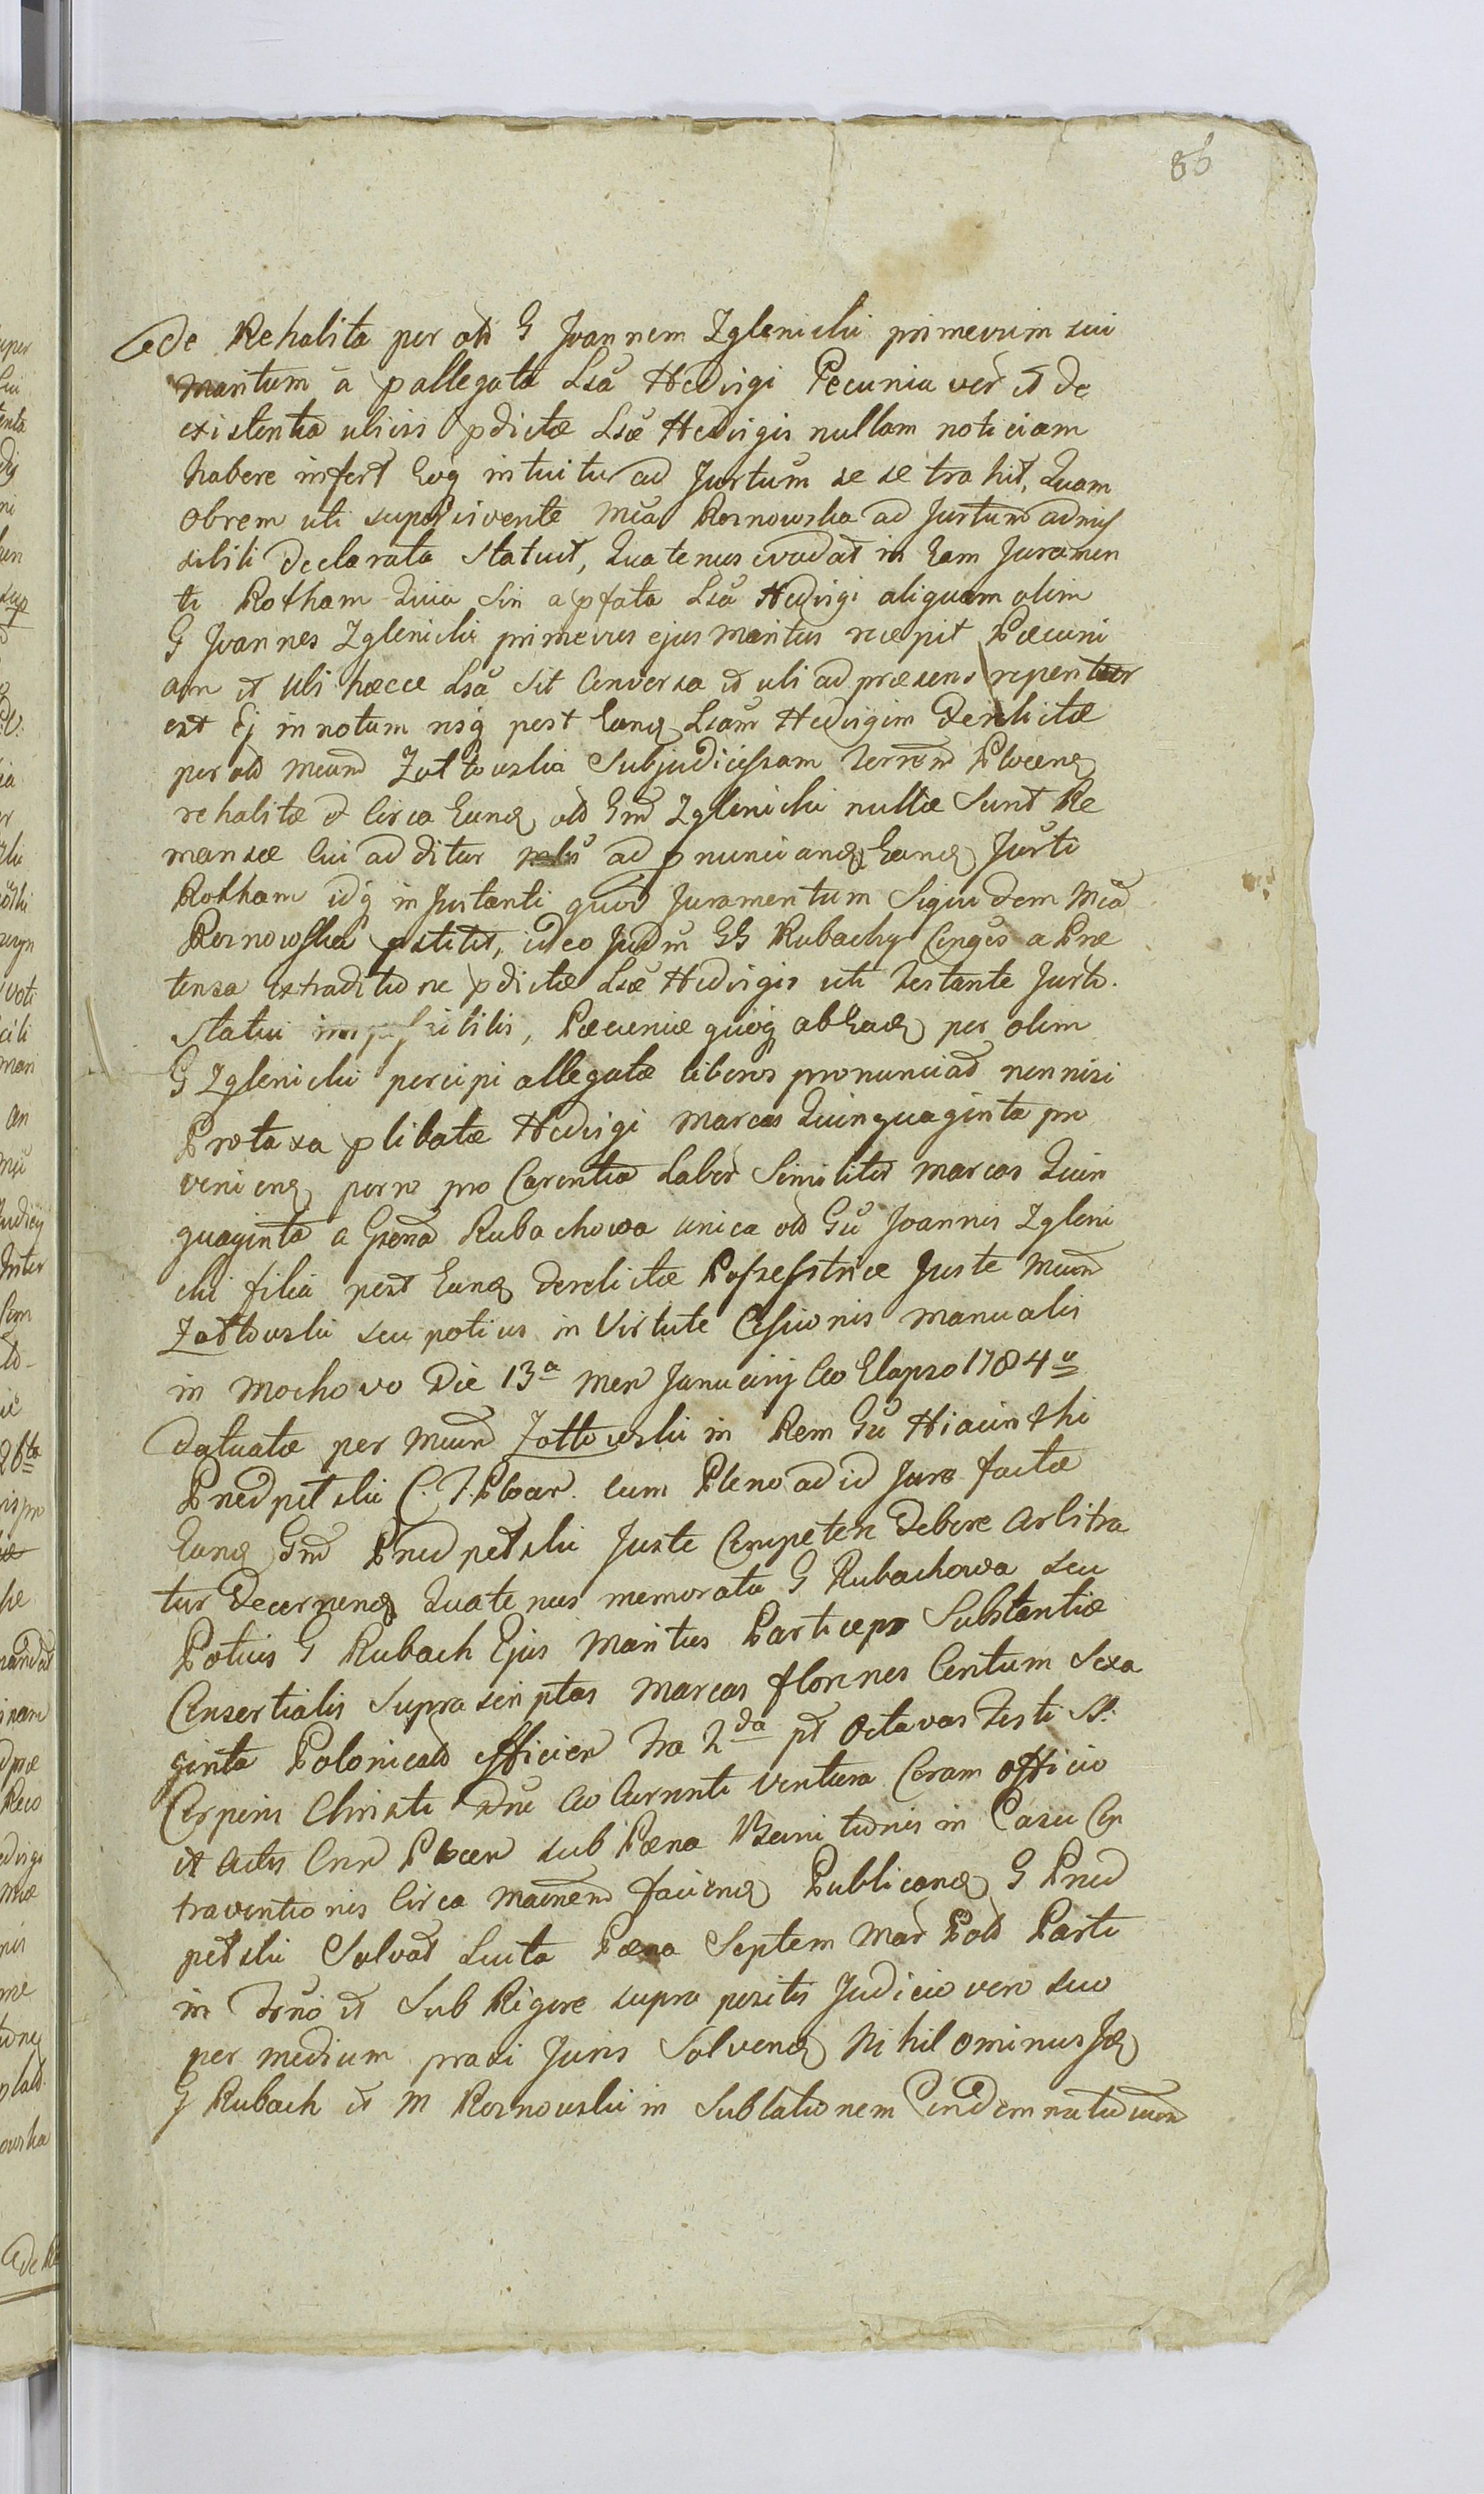 86
de Rehabita per olī G Joannem Zglenicki primevum sui
Maritum a pallegata Lsa Hedvigi Pecunia ver et de
existentia ubivis pdictæ Lsæ Hedvigis nullam noticiam
habere infert Eoq intuitu ad Jurtum se se trahit, Quam
obrem uti supervivente Mca Roznowska ad Jurtum admis
sibili declarata Statuit, Quatenus evadat in Eam Juramen
ti Rotham Quia Sin a pfata Lsa Hedvigi aliquam olim
G Joannes Zglenicki primevus ejus Maritus recepit Pæcuni
am et Ubi hæcce Lsa Sit Conversa et ubi ad præsens reperitur
est Ej innotum nsq post Eand Lsam Hedvigim Derelictæ
per old Mcum Zottowska Subjudicissam Terrem Plocens
rehabitæ et Circa Eund old Gnd Zglenicki nullæ Sunt Re
mansæ Cui additur ad pnunciand Eand Jurti
Rotham idq in Instanti quod Juramentum Siquidem Mca
Roznowska pstitit, ideo Judm GG Rubachy Conges a Præ
tensa extraditione pdictæ Lsæ Hedvigis uti testante Jurto.
Statui impossibilis, Pæcuniæ quoq ab Ead per olim
G Zglenicki percipi allegatæ liberos pronunciat nonnisi
Pro taxa plibatæ Hedvigi Marcas Quinquaginta pro
veniend porro pro Carentia Labor Similiter Marcas Quin
quaginta a Grosa Rubachowa unica old Gu Joannis Zgleni
cki filia post Eund derelictæ Possessitrice Juste Mcum
Zottowski seu potius in Virtute Cessionis Manualis
in Mochowo Die 13ª Men Januarij Ao Elapso 1784º
datuatæ per Mcum Zottowski in Rem Gu Hiacinthi
Pnedpetski C. T. Plocen. cum Pleno ad id Jure factæ
Eund Gnd Pnedpetski Juste Competere Debere arbitra
tur Decernend Quatenus memorata G Rubachowa seu
Potius G Rubach Ejus Maritus Particeps Substantiæ
Consortialis Suprascriptas Marcas florenos Centum Sexa
ginta Polonicales efficien Fra 2da pt Octavas Festi SS:
Corporis Christi Dni Ao Currenti Ventura Coram officio
et Actis Cnn Plocen sub Pæna Banitionis in Casu Con
traventionis Circa Maenem faciend Publicand G Pned
petski Solvat Luita Pæna Septem Mar Pold Parti
in Trno et Sub Rigore supra positis Judicio vero suo
per medium praxi Juris Solvend Nihilominus Jd
G Rubach et M Roznowski in Sublationem Condemnationum